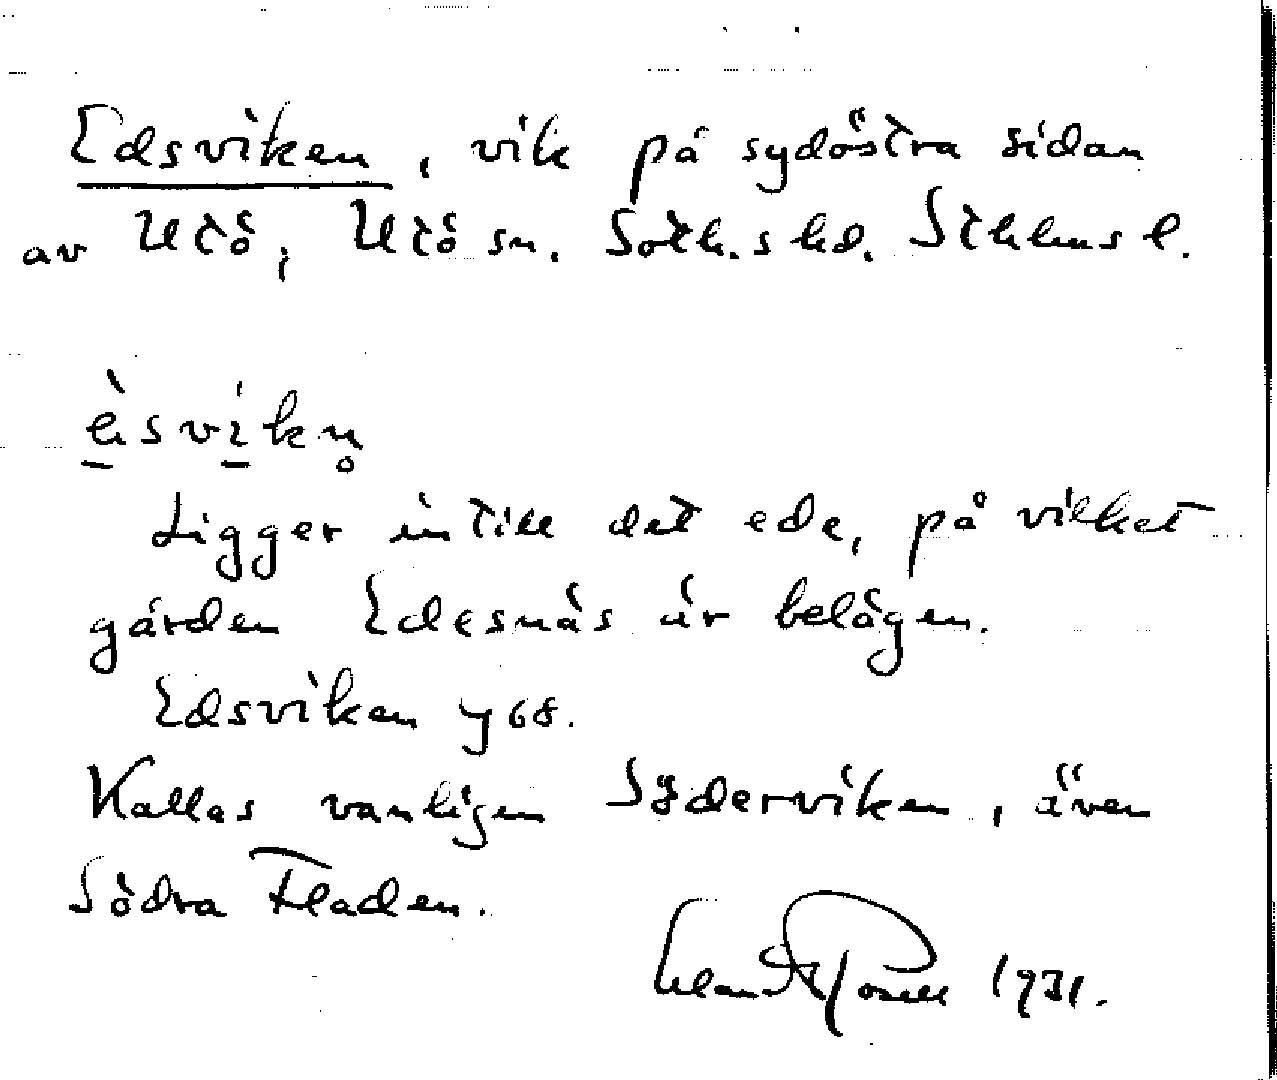 Edsviken, vik på sydöstra sidan
av Utö, Utö sn. Soth.s hd. Sthlms l.
èsvíkn̥
Ligger intill det ede, på vilket
gården Edesnäs är belägen.
Edsviken y 68.
Kallas vanligen Söderviken, även
Södra Fladen.
1931.